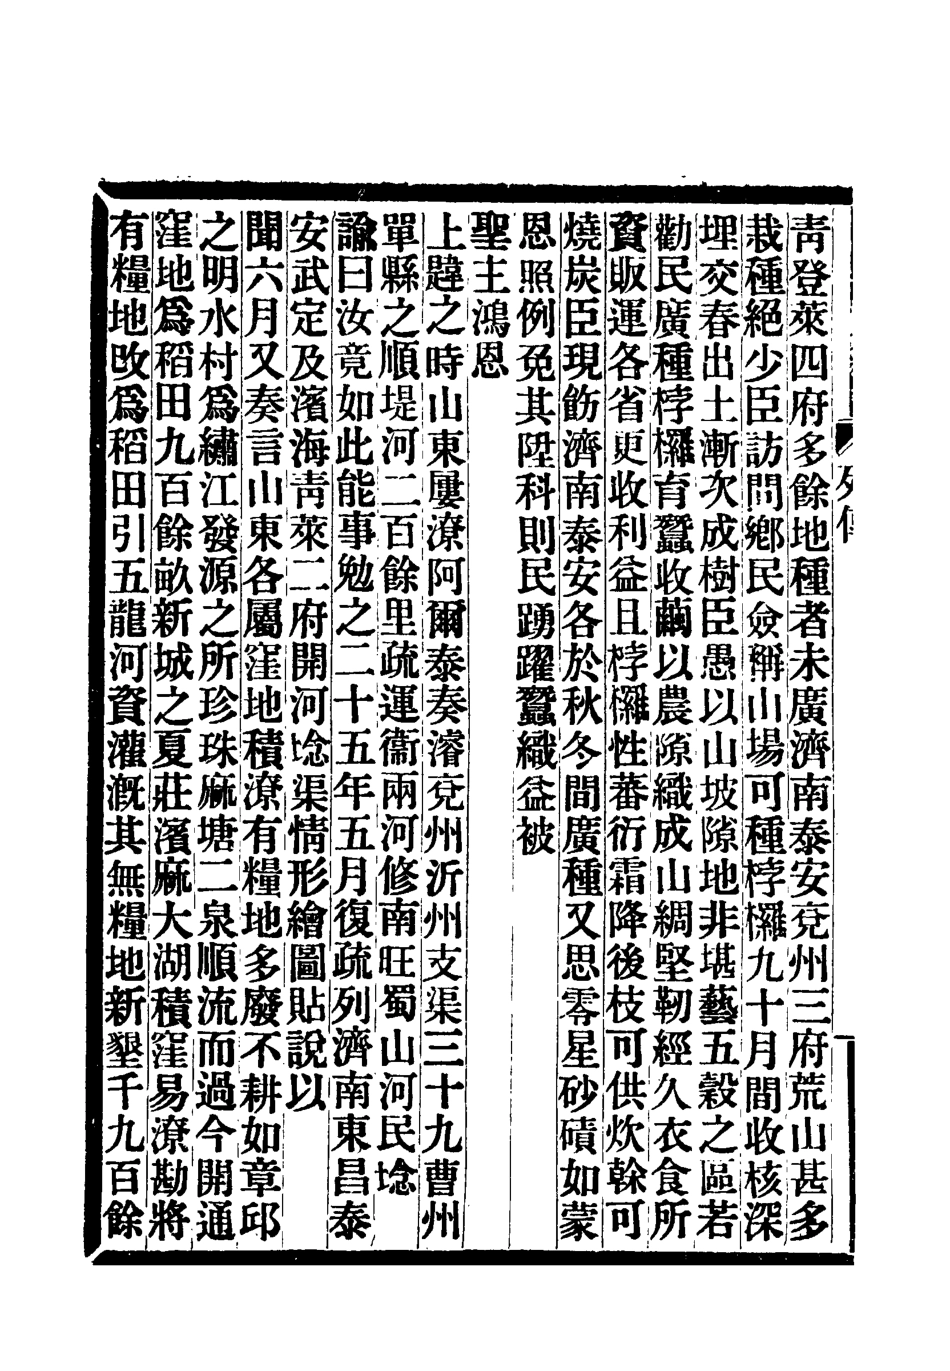 列傳
青登萊四府多餘地種者未廣濟南泰安兗州三府荒山甚多
栽種絕少臣訪問鄉民僉稱山場可種桲欏九十月間收核深
埋交春出土漸次成樹臣愚以山坡隙地非堪藝五穀之區若
勸民廣種桲欏育蠶收繭以農隙織成山綢堅韌經久衣食所
資販運各省更收利益且桲欏性蕃衍霜降後枝可供炊榦可
燒炭臣現飭濟南泰安各於秋冬間廣種又思零星砂磧如蒙
恩照例免其陞科則民踴躍蠶織益被
聖主鴻恩
上韙之時山東屢潦阿爾泰奏濬兗州沂州支渠三十九曹州
單縣之順堤河二百餘里疏運衞兩河修南旺蜀山河民埝
諭曰汝竟如此能事勉之二十五年五月復疏列濟南東昌泰
安武定及濱海青萊二府開河埝渠情形繪圖貼說以
聞六月又奏言山東各屬窪地積潦有糧地多廢不耕如章邱
之明水村爲繡江發源之所珍珠麻塘二泉順流而過今開通
窪地爲稻田九百餘畝新城之夏莊濱麻大湖積窪易潦勘將
有糧地改爲稻田引五龍河資灌漑其無糧地新墾千九百餘